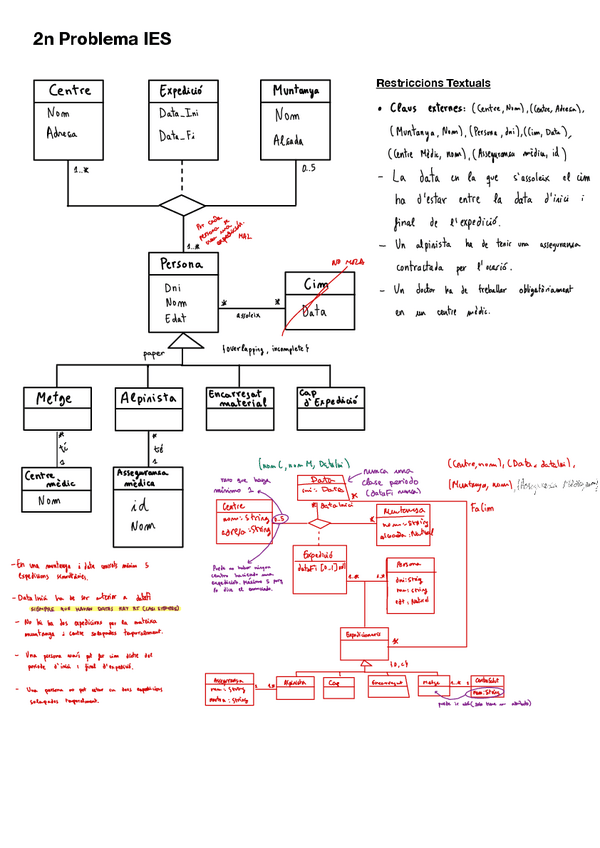 2n Problema IES
Centre
Nom
Adresa
Expedició
Data_Ini
Data_Fi
Muntanya
Nom
Alçada
1..*
0..5
Per cada
persona
una
expedició.
MAL
1..*
Persona
Dni
Nom
Edat
*
assoleix
*
NO
Cim
Data
paper
{overlapping, incomplete}
Metge
Alpinista
Encarregat
material
Cap
d'Expedició
*
té
1
*
té
1
Centre
mèdic
Nom
Assegurança
mèdica
id
Nom
Restriccions Textuals
• Claus externes: (Centre, Nom), (Centre, Adresa),
(Muntanya, Nom), (Persona, dni), (Cim, Data),
(Centre Mèdic, nom), (Assegurança mèdica, id)
- La data en la que s'assoleix el cim
ha d'estar entre la data d'inici i
final de l'expedició.
- Un alpinista ha de tenir una assegurança
contractada per l'ocasió.
- Un doctor ha de treballar obligatòriament
en un centre mèdic.
(nom C, nom M, DataIni)
nunca una
clase periodo
(dataFi nunca)
(Centre, nom), (Data, dataIni),
(Muntanya, nom),
Falim
que haya
mínimo 1
Data
ini: Data
* Data Inici
Centre
nom: String
adreça: String
0..5
Muntanya
nom: String
alçada: Natural
Expedició
dataFi [0..1]
1..*
1..*
Persona
dni: String
nom: String
edat: Natural
Puede no haber ningun
centro haciendo una
expedición, máximo 5 porq
lo dice el enunciado.
*
Assegurança
nom: String
Alpinista
Cap
Encarregat
Metge
1..*
CentreSalut
nom: String
- En una muntanya i data només màxim 5
expedicions simultànies.
- DataInici ha de ser anterior a dataFi
SIEMPRE QUE HAYAN DATAS HAY RT
- No hi ha dos expedicions per la mateixa
muntanya i centre solapades temporalment.
- Una persona només pot fer cim dintre del
període d'inici i final d'expedició.
- Una persona no pot estar en dos expedicions
solapades temporalment.